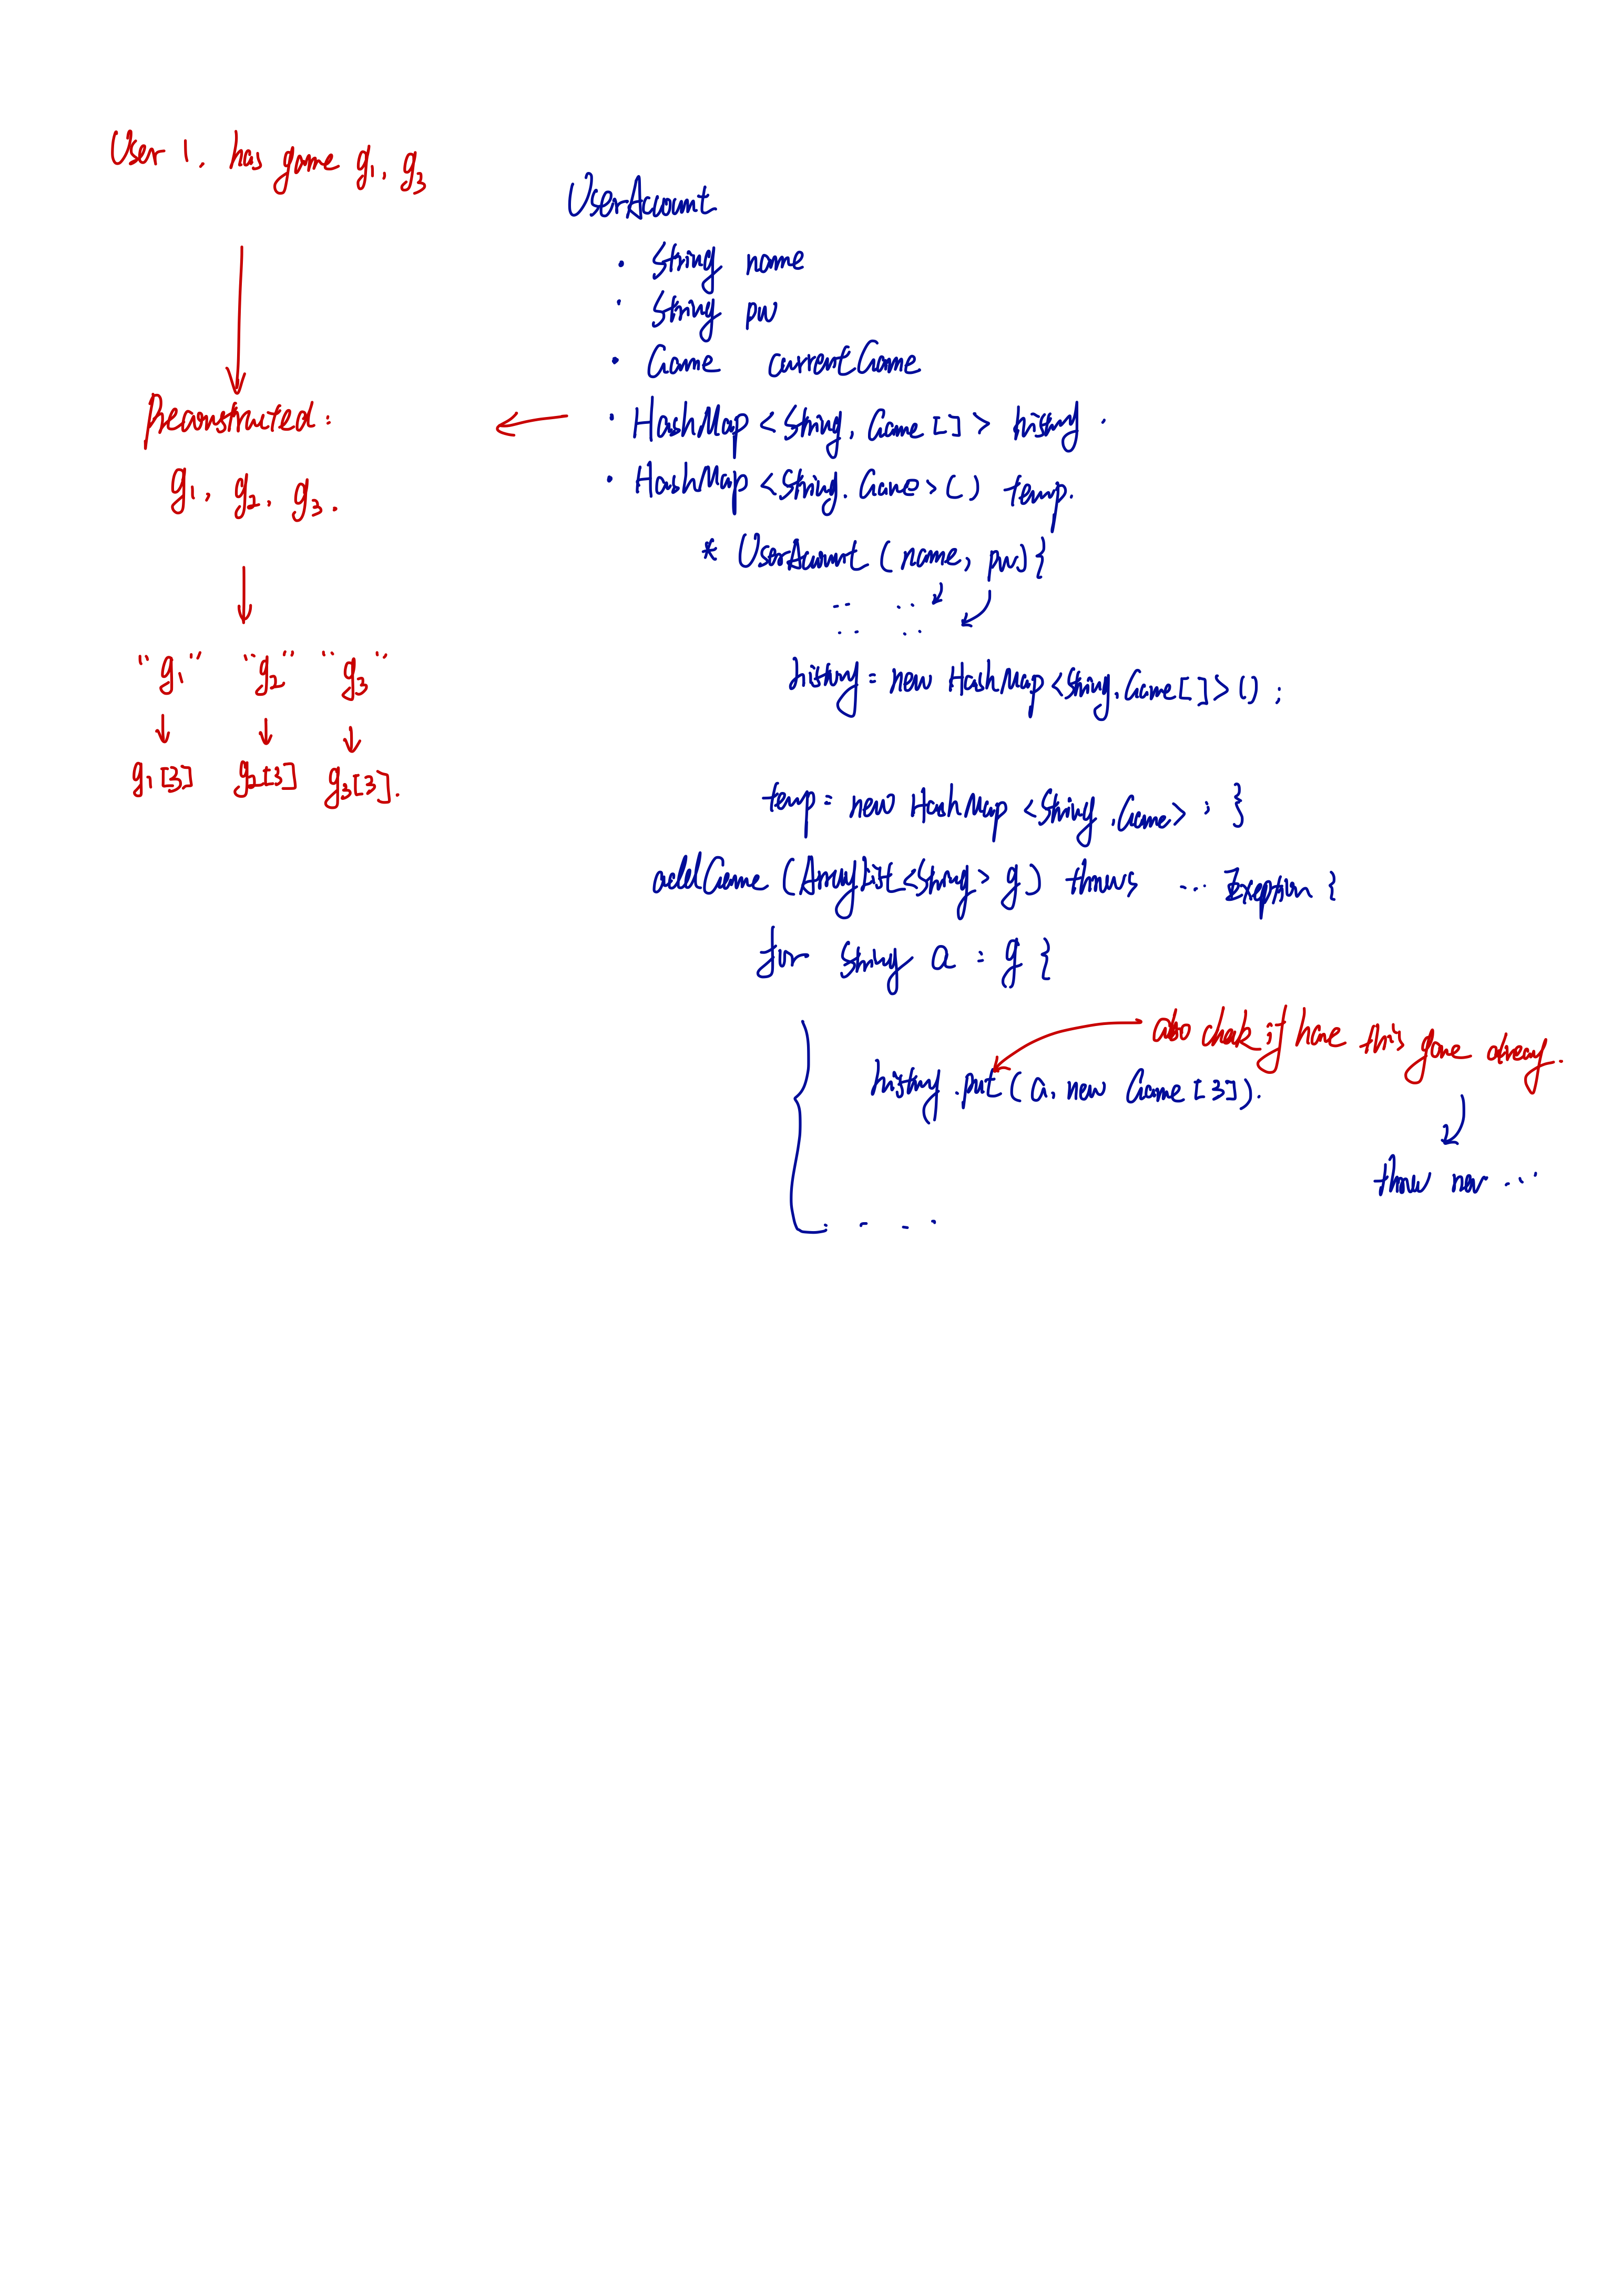 User 1. has game g1, g3
Reconstructed:
g1, g2, g3.
"g1" "g2" "g3"
g1[3] g2[3] g3[3].
UserAccount
· String name
· String pw
· Game currentGame
· HashMap <String, Game[]> history.
· HashMap <String. Game>() temp.
* UserAccount (name, pw){
history = new HashMap <String, Game[]>();
temp = new HashMap <String, Game>; }
addGame (ArrayList<String> g) throws ... Exeption {
for String a : g {
also chek if have this game alreay.
history.put (a, new Game[3]).
throw new ...
. . . .